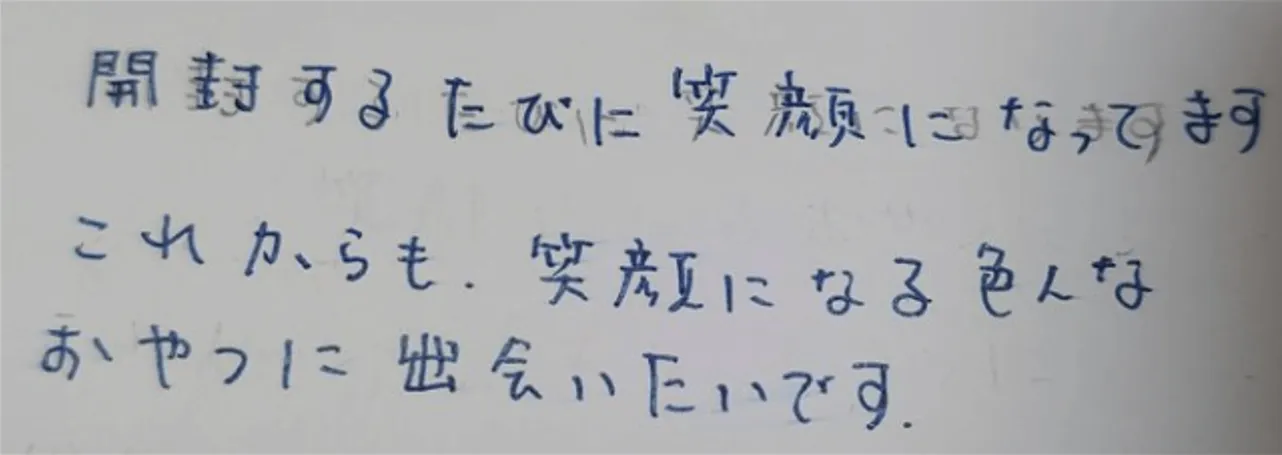 開封するたびに笑顔になってます
これからも.笑顔になる色んな
おやつに出会いたいです.